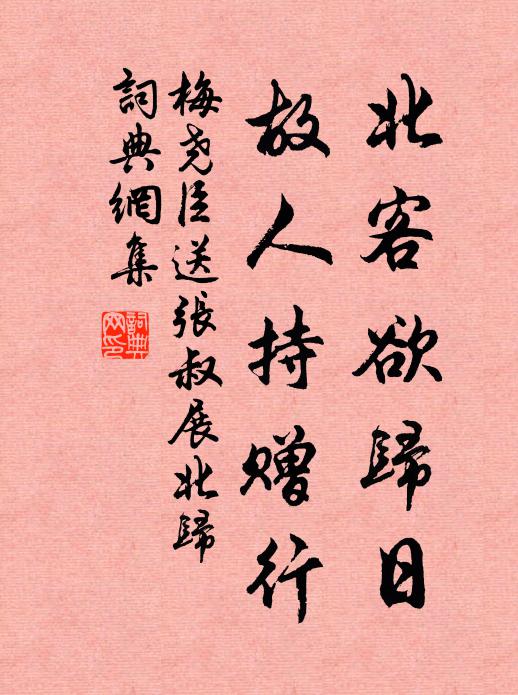 北客欲歸日
故人持贈行
梅堯臣送張叔展北歸
詞典網集
詞典网印